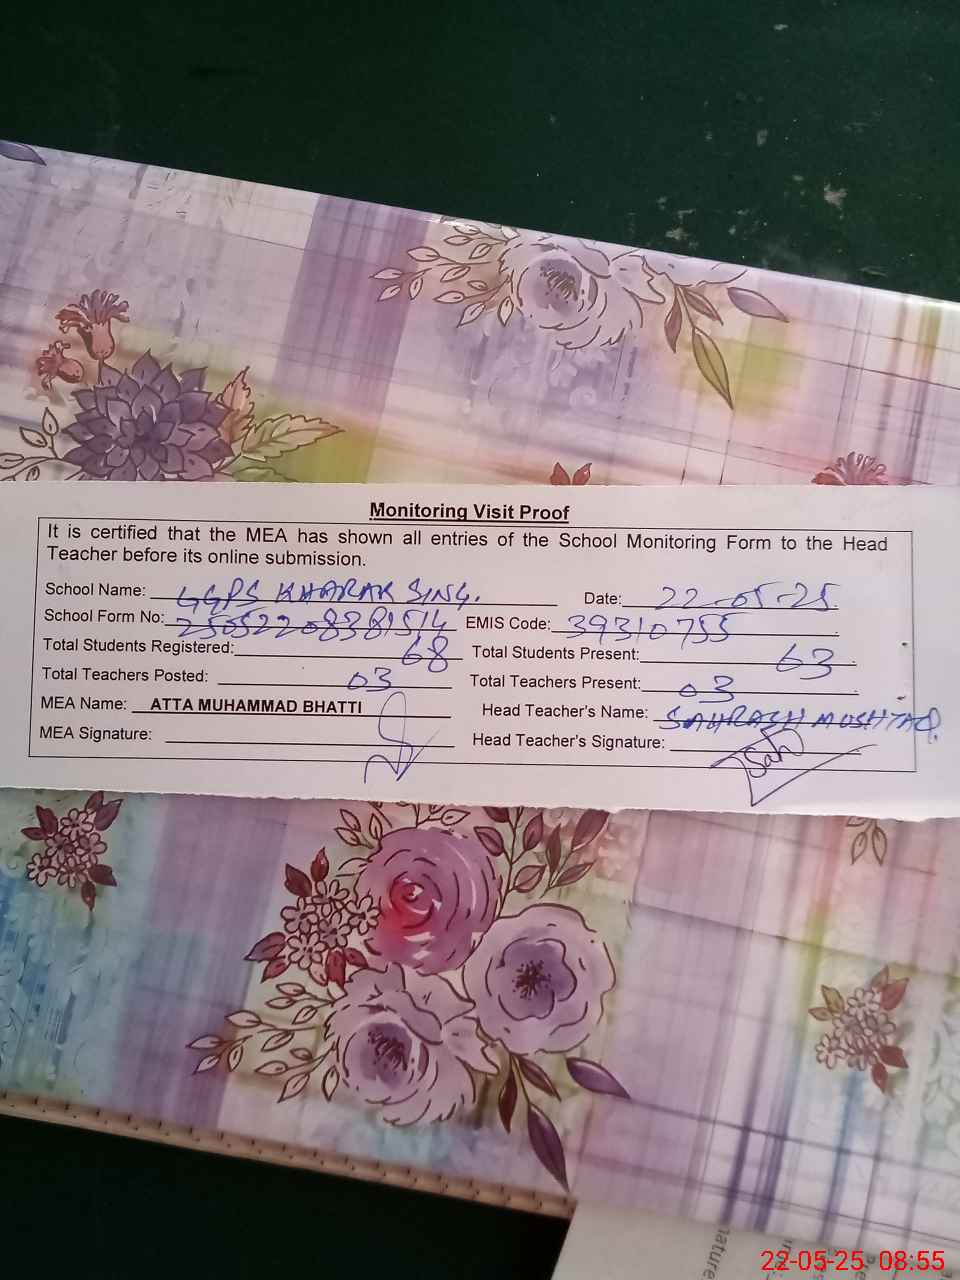 Monitoring Visit Proof
It is certified that the MEA has shown all entries of the School Monitoring Form to the Head
Teacher before its online submission.
School Name: GGPS KHARAK SING. Date: 22-05-25
School Form No: 25052208381514 EMIS Code: 39310755
Total Students Registered: 68 Total Students Present: 63
Total Teachers Posted: 03 Total Teachers Present: 03
MEA Name: ATTA MUHAMMAD BHATTI Head Teacher's Name: MUSHTAQ.
MEA Signature: Head Teacher's Signature: Sah
22-05-25 08:55